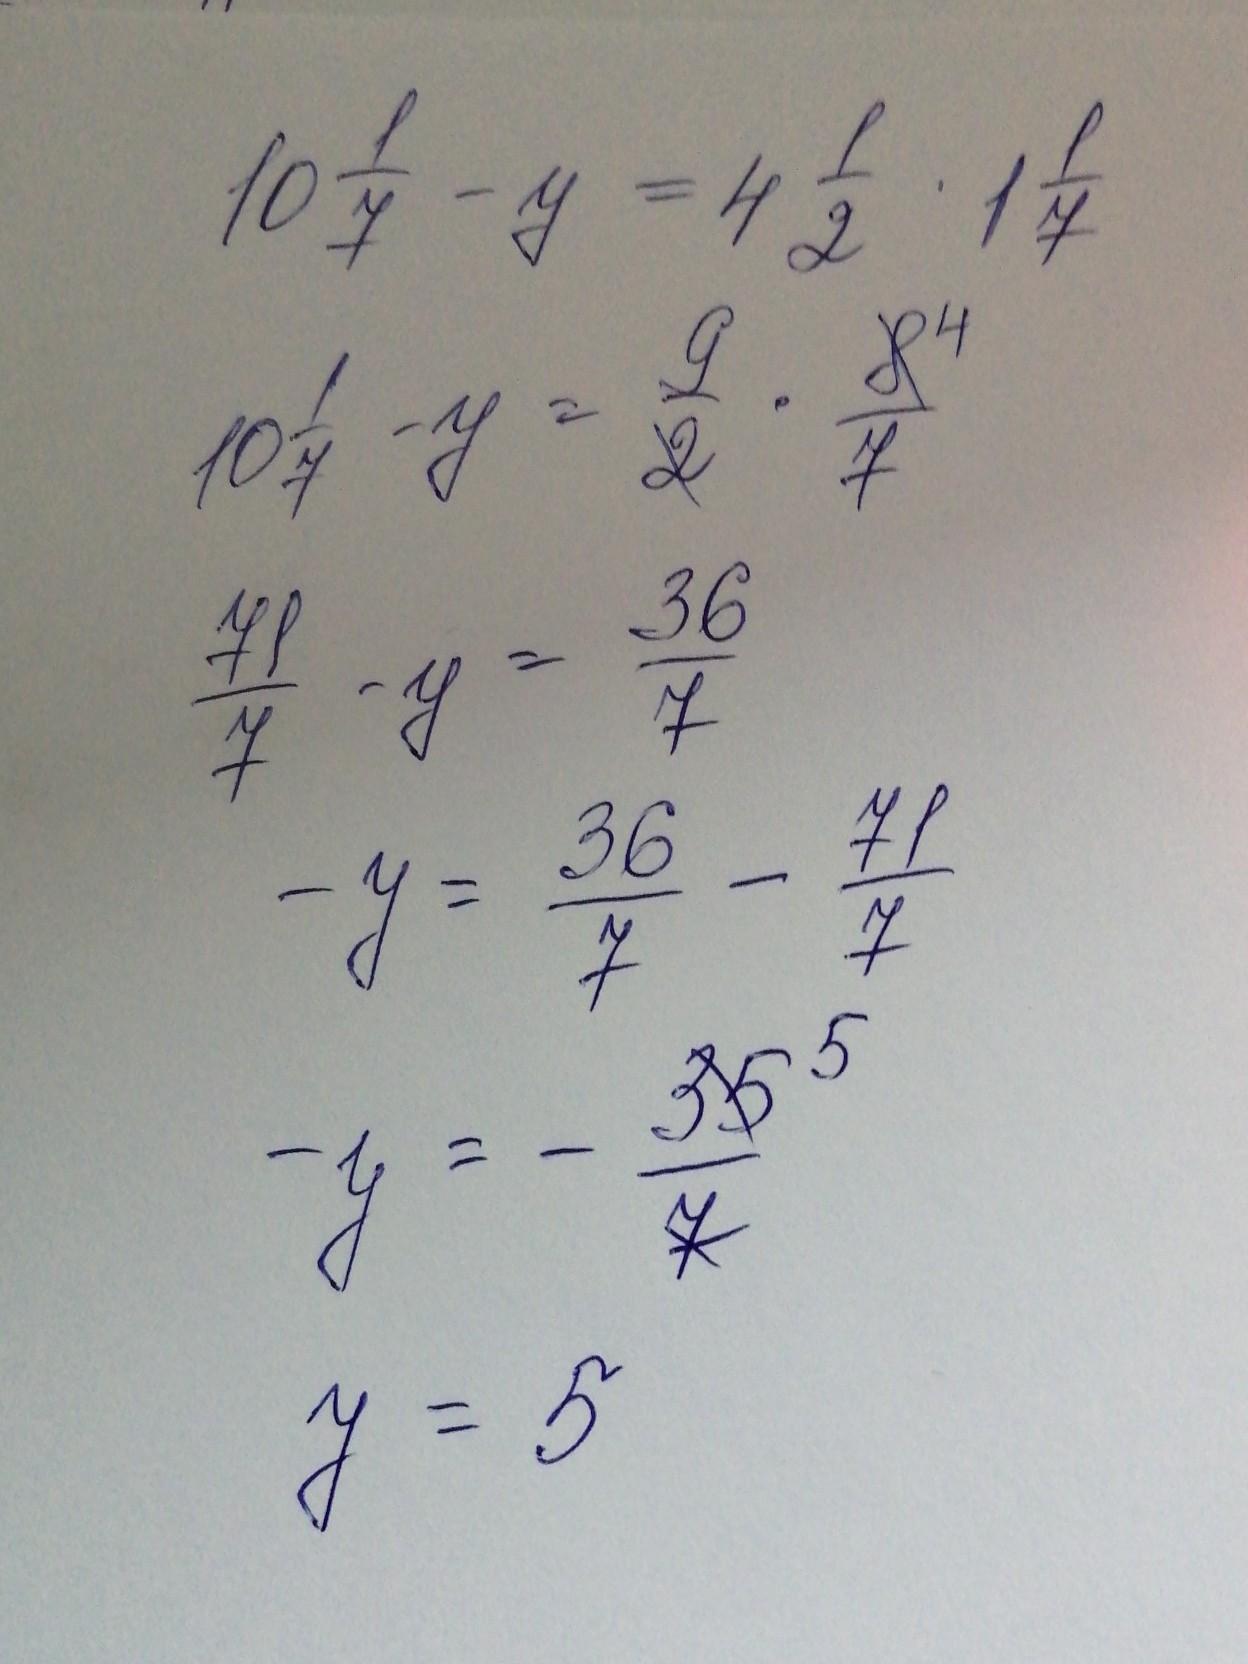 10 1/7 - y = 4 1/2 · 1 1/7
10 1/7 - y = 9/2 · 8/7 4
71/7 - y = 36/7
- y = 36/7 - 71/7
- y = - 35/7 5
y = 5